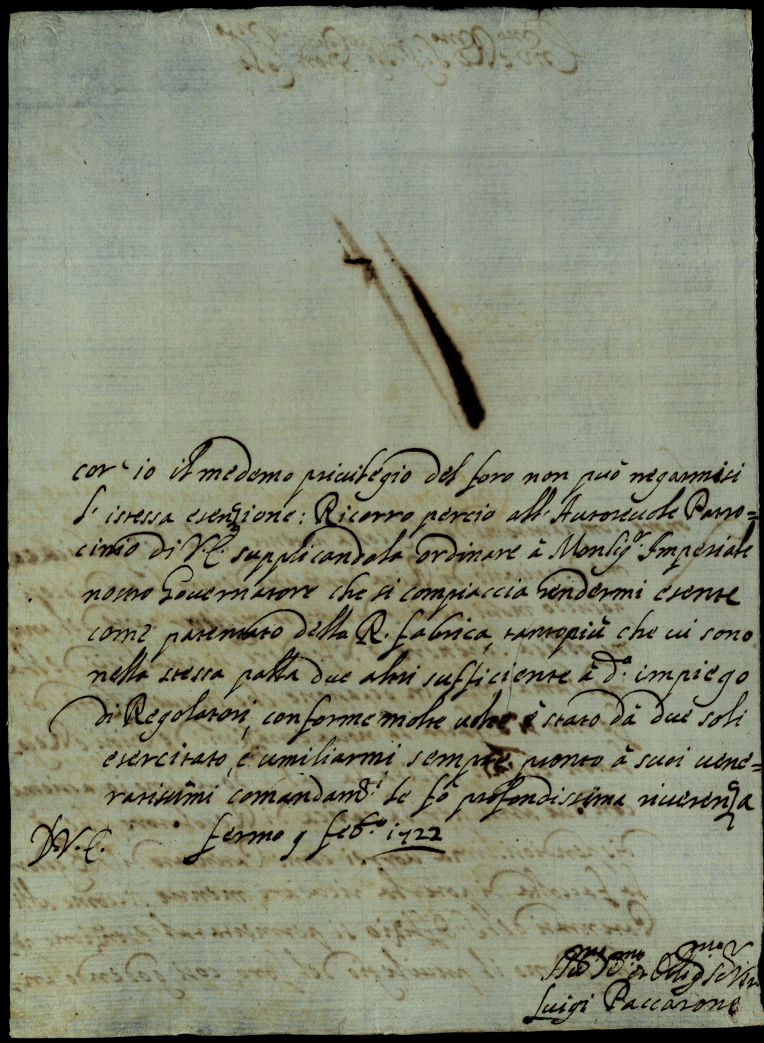 cor io il medemo priuilegio del foro non può negarmisi
l'istessa esenzione: Ricorro perciò all'Autoreuole Patro=
cinio di V.E. supplicandola ordinare à Monsig.r Imperiale
nostro Gouernatore che si compiaccia rendermi esente
come patentato della R. fabrica, tantopiù che ui sono
nella stessa palla due altri sufficiente à d.o impiego
di Regolatori, conforme molte uolte è stato dà due soli
esercitato, è umiliarmi sempre pronto à suoi uene=
ratissimi comandam.ti le fò profondissima riuerenza
D.V.E. fermo 9 feb.o 1722
Luigi Paccarone